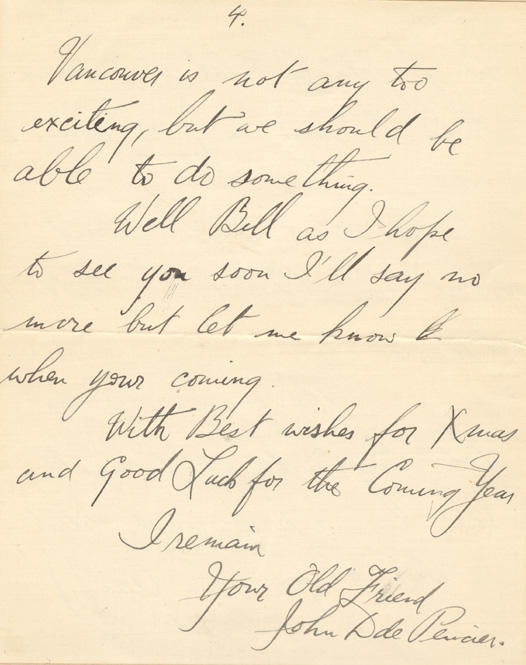 4.
Vancouver is not any too
exciting, but we should be
able to do something.
Well Bill as I hope
to see you soon I'll say no
more but let me know
when your coming.
With Best wishes for Xmas
and Good Luck for the Coming Year
I remain
Your Old Friend
John D de Pencier.